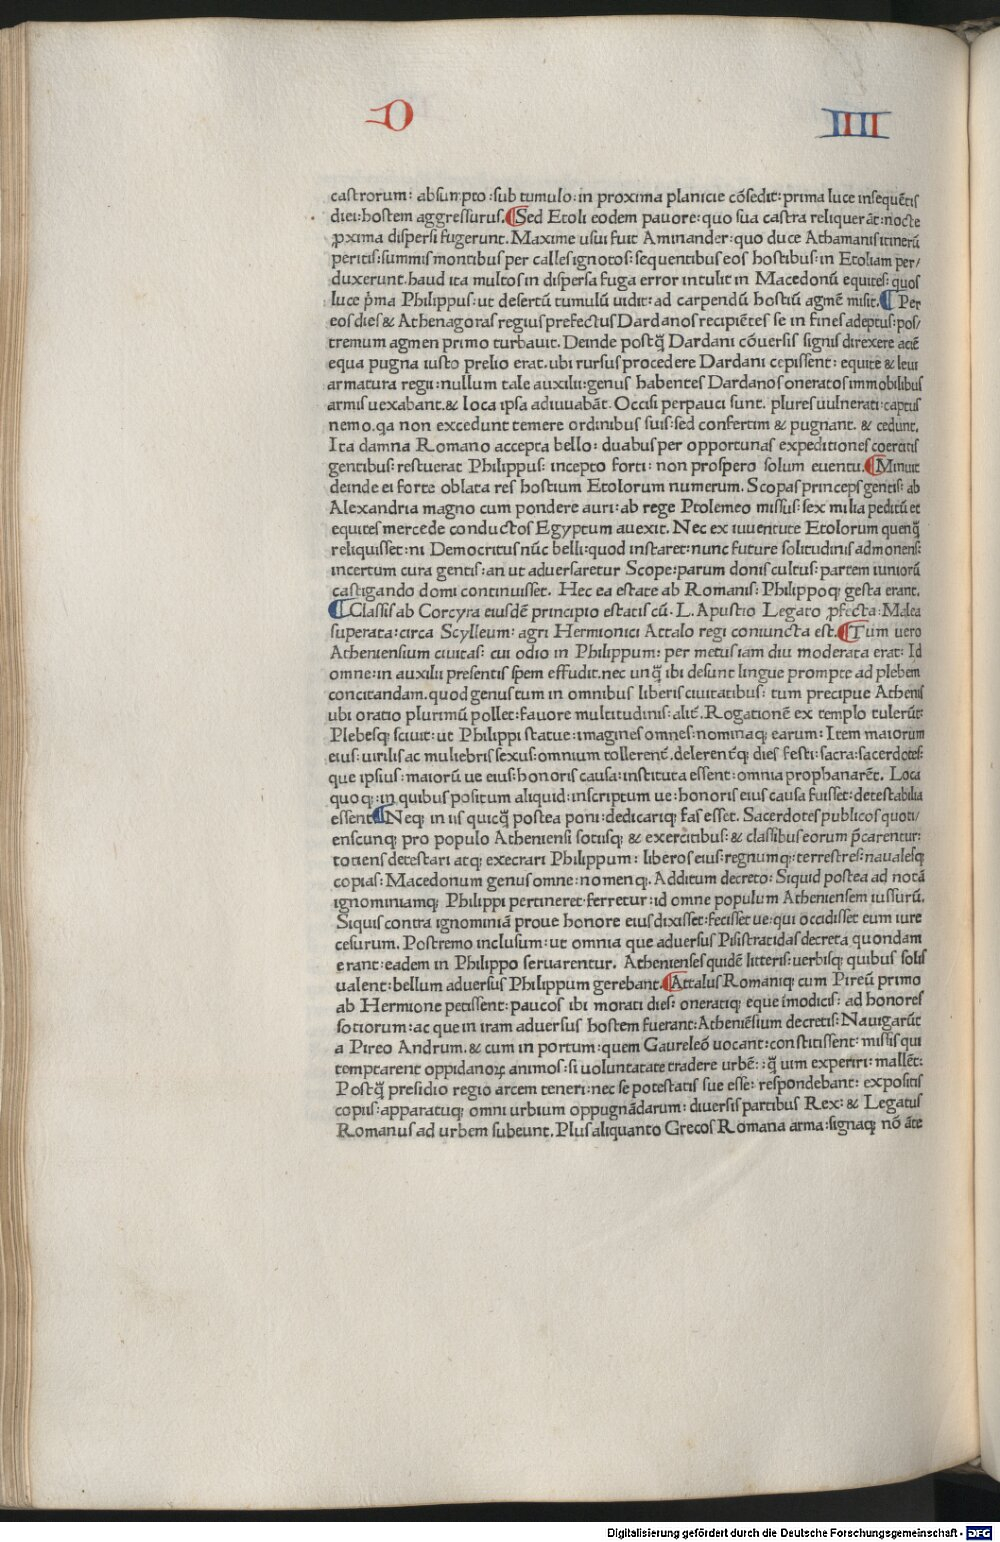 D IIII
castrorum: absumpto: sub tumulo: in proxima planicie cõsedit: prima luce insequẽtis
diei: hostem aggressurus. ¶Sed Etoli eodem pauore: quo sua castra reliquerãt: nocte
ꝓxima dispersi fugerunt. Maxime usui fuit Aminander: quo duce Athamanis itinerũ
peritis: summis montibus per calles ignotos: sequentibus eos hostibus: in Etoliam per/
duxerunt. haud ita multos in dispersa fuga error intulit in Macedonũ equites: quos
luce p̃ma Philippus: ut desertũ tumulũ uidit: ad carpendũ hostiũ agmẽ misit. ¶ Per
eos dies & Athenagoras regius prefectus Dardanos recipiẽtes se in fines adeptus: pos/
tremum agmen primo turbauit. Deinde postq̃ Dardani cõuersis signis direxere aciẽ
equa pugna iusto prelio erat. ubi rursus procedere Dardani cepissent: equite & leui
armatura regii: nullum tale auxilii: genus habentes Dardanos oneratos immobilibus
armis uexabant. & loca ipsa adiuuabãt. Occisi perpauci sunt. plures uulnerati: captus
nemo. qa non excedunt temere ordinibus suis: sed confertim & pugnant. & cedunt.
Ita damna Romano accepta bello: duabus per opportunas expeditiones coercitis
gentibus: restuerat Philippus: incepto forti: non prospero solum euentu. ¶Minuit
deinde ei forte oblata res hostium Etolorum numerum. Scopas princeps gentis: ab
Alexandria magno cum pondere auri: ab rege Ptolemeo missus: sex milia peditũ et
equites mercede conductos Egyptum auexit. Nec ex iuuentute Etolorum quenq̃
reliquisset: ni Democritus nũc belli: quod instaret: nunc future solitudinis admonens:
incertum cura gentis: an ut aduersaretur Scope: parum donis cultus: partem iuniorũ
castigando domi continuisset. Hec ea estate ab Romanis: Philippoq; gesta erant.
¶Classis ab Corcyra eiusdẽ principio estatis cũ. L. Apustio Legato ꝓfecta: Malea
superata: circa Scylleum: agri Hermionici Attalo regi coniuncta est. ¶Tum uero
Atheniensium ciuitas: cui odio in Philippum: per metus iam diu moderata erat: Id
omne: in auxilii presentis spem effudit. nec unq̃ ibi desunt lingue prompte ad plebem
concitandam. quod genus tum in omnibus liberis ciuitatibus: tum precipue Athenis
ubi oratio plurimũ pollet: fauore multitudinis: alit̃. Rogationẽ ex templo tulerũt:
Plebesq; sciuit: ut Philippi statue: imagines omnes: nominaq; earum: Item maiorum
eius: uirilis ac muliebris sexus: omnium tollerent̃. delerent̃q; dies festi: sacra: sacerdotes:
que ipsius: maiorũ ue eius: honoris causa: instituta essent: omnia prophanarẽt. Loca
quoq;: in quibus positum aliquid: inscriptum ue: honoris eius causa fuisset: detestabilia
essent ¶Neq; in iis quicq̃ postea poni: dedicariq; fas esset. Sacerdotes publicos quoti/
enscunq; pro populo Atheniensi sotiisq; & exercitibus: & classibus eorum p̃carentur:
totiens detestari atq; execrari Philippum: liberos eius: regnumq;: terrestres: naualesq;
copias: Macedonum genus omne: nomenq;. Additum decreto: Siquid postea ad notã
ignominiamq; Philippi pertineret: ferretur: id omne populum Atheniensem iussurũ.
Siquis contra ignominiã proue honore eius dixisset: fecisset ue: qui occidisset eum iure
cesurum. Postremo inclusum: ut omnia que aduersus Pisistratidas decreta quondam
erant: eadem in Philippo seruarentur. Athenienses quidẽ litteris: uerbisq; quibus solis
ualent: bellum aduersus Philippum gerebant. ¶Attalus Romaniq; cum Pireũ primo
ab Hermione petissent: paucos ibi morati dies: oneratiq; eque ĩmodicis: ad honores
sotiorum: ac que in iram aduersus hostem fuerant: Atheniẽsium decretis: Nauigarũt
a Pireo Andrum. & cum in portum: quem Gaureleõ uocant: constitissent: missis qui
temptarent oppidanoꝝ animos: si uoluntatate tradere urbẽ: : q̃ uim experiri: mallẽt:
Postq̃ presidio regio arcem teneri: nec se potestatis sue esse: respondebant: expositis
copiis: apparatuq; omni urbium oppugnãdarum: diuersis partibus Rex: & Legatus
Romanus ad urbem subeunt. Plus aliquanto Grecos Romana arma: signaq; nõ ãte
Digitalisierung gefördert durch die Deutsche Forschungsgemeinschaft - DFG